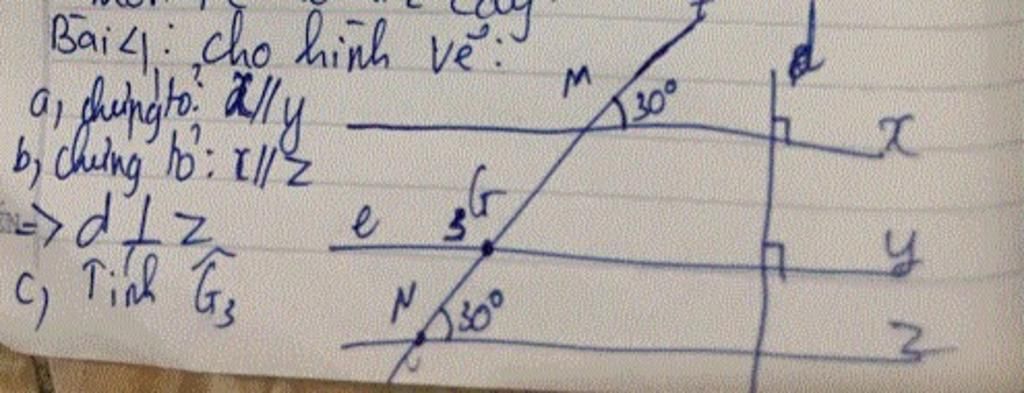 Bài 4: Cho hình vẽ:
a, chứng tỏ: x//y
b, chứng tỏ: x//z
=> d ⊥ z
c, Tính Ĝ₃
M 30°
d
x
e 3 G
y
N 30°
z